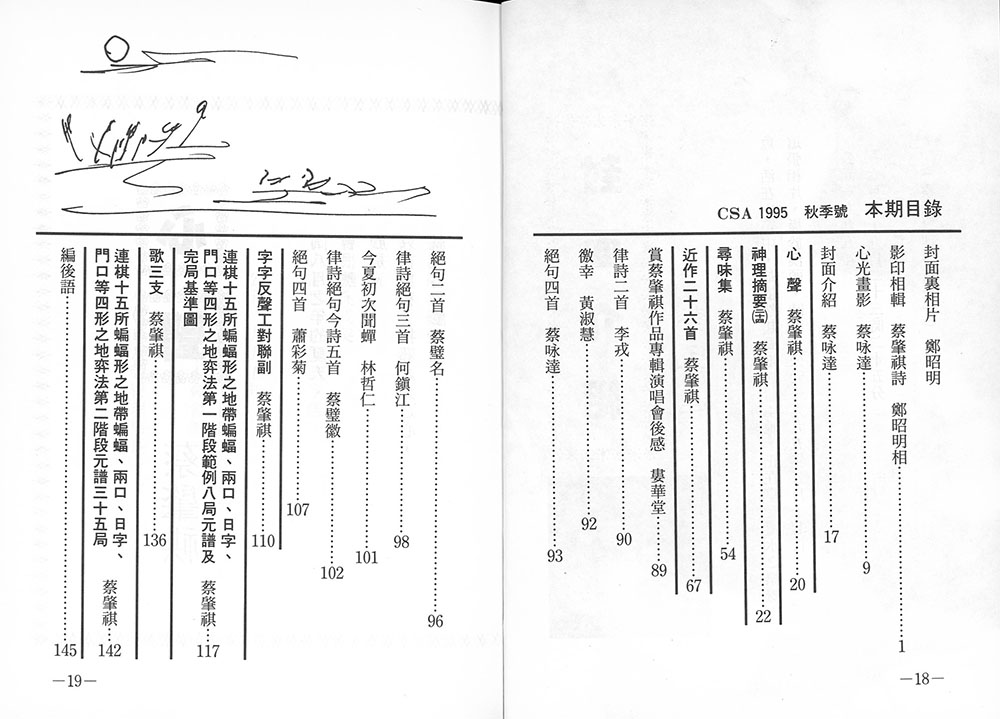 CSA 1995 秋季號 本期目錄
封面裏相片 鄭昭明
影印相輯 蔡肇祺詩 鄭昭明相……1
心光畫影 蔡咏達……9
封面介紹 蔡咏達……17
心聲 蔡肇祺……20
神理摘要㊁ 蔡肇祺……22
尋味集 蔡肇祺……54
近作二十六首 蔡肇祺……67
賞蔡肇祺作品專輯演唱會後感 婁華堂……89
律詩二首 李戎……90
徼幸 黃淑慧……92
絕句四首 蔡咏達……93
—18—
絕句二首 蔡璧名……96
律詩絕句三首 何鎭江……98
今夏初次聞蟬 林哲仁……101
律詩絕句今詩五首 蔡璧徽……102
絕句四首 蕭彩菊……107
字字反聲工對聯副 蔡肇祺……110
連棋十五所蝙蝠形之地帶蝙蝠、兩口、日字、
門口等四形之地弈法第一階段範例八局元譜及
完局基準圖 蔡肇祺……117
歌三支 蔡肇祺……136
連棋十五所蝙蝠形之地帶蝙蝠、兩口、日字、
門口等四形之地弈法第二階段元譜三十五局 蔡肇祺……142
編後語……145
—19—